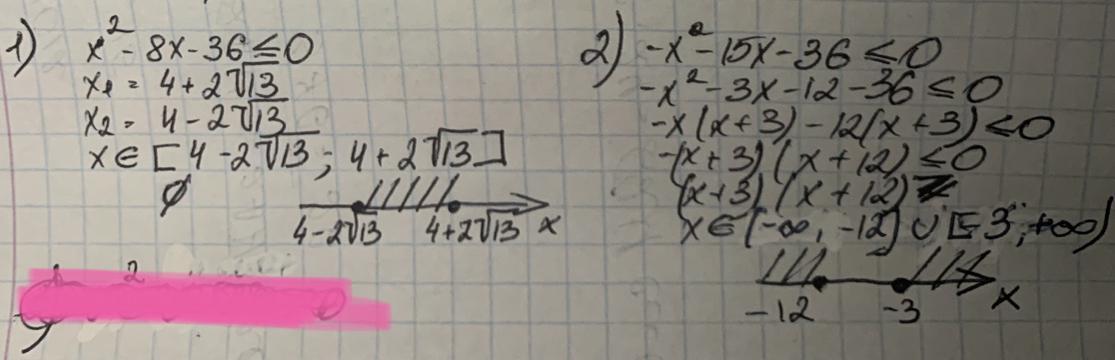 1) x² - 8x - 36 ≤ 0
x₁ = 4 + 2√13
x₂ = 4 - 2√13
x ∈ [4 - 2√13 ; 4 + 2√13]
∅
4-2√13 4+2√13 x
2) -x² - 15x - 36 ≤ 0
-x² - 3x - 12 - 36 ≤ 0
-x(x+3) - 12(x+3) ≤ 0
-(x+3)(x+12) ≤ 0
(x+3)(x+12)
x ∈ (-∞, -12] ∪ [-3 ; +∞)
-12 -3 x